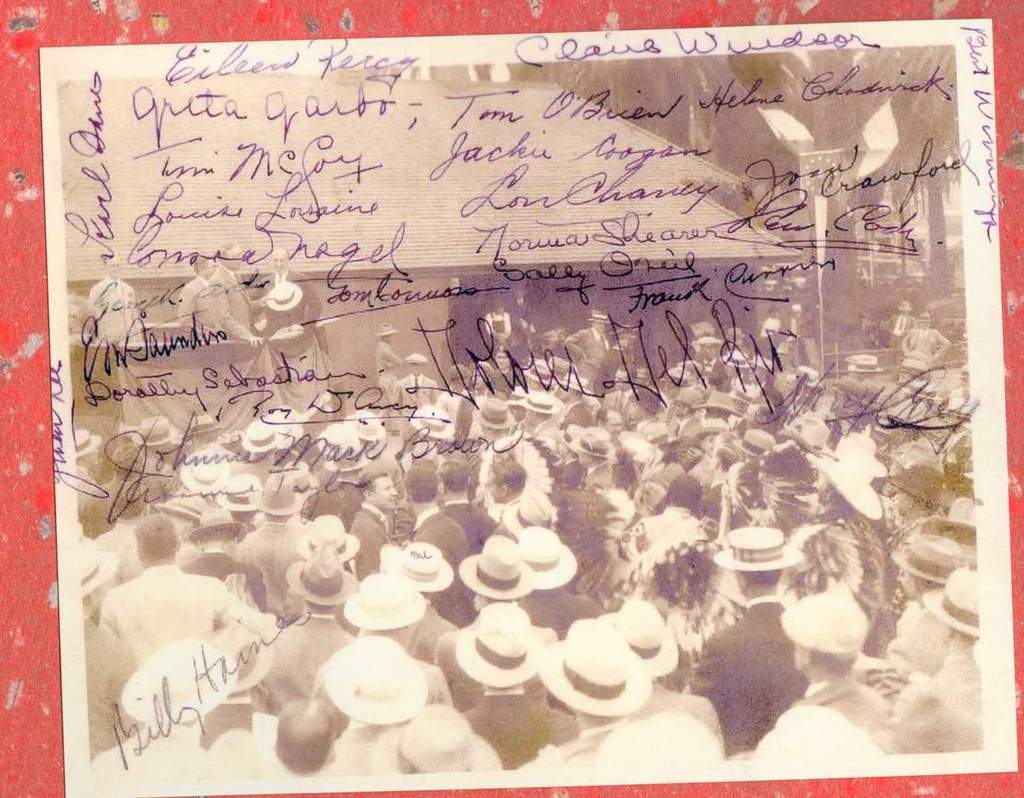 Eileen Percy
Claire Windsor
Greta Garbo -,
Tom O'Brien
Helene Chadwick.
Karl Dane
Tim McCoy
Jackie Coogan
Joan Crawford
Louise Lorraine
Lon Chaney
Lew. Cody.
Conrad Nagel
Norma Shearer
Sally O'Neil
George K. Arthur
Tom Connors
Frank Currier
Saunders
Dorothy Sebastian.
Dolores Del Rio
Roy D'Arcy.
Johnnie Mack Brown
Taylor
me
Billy Haines